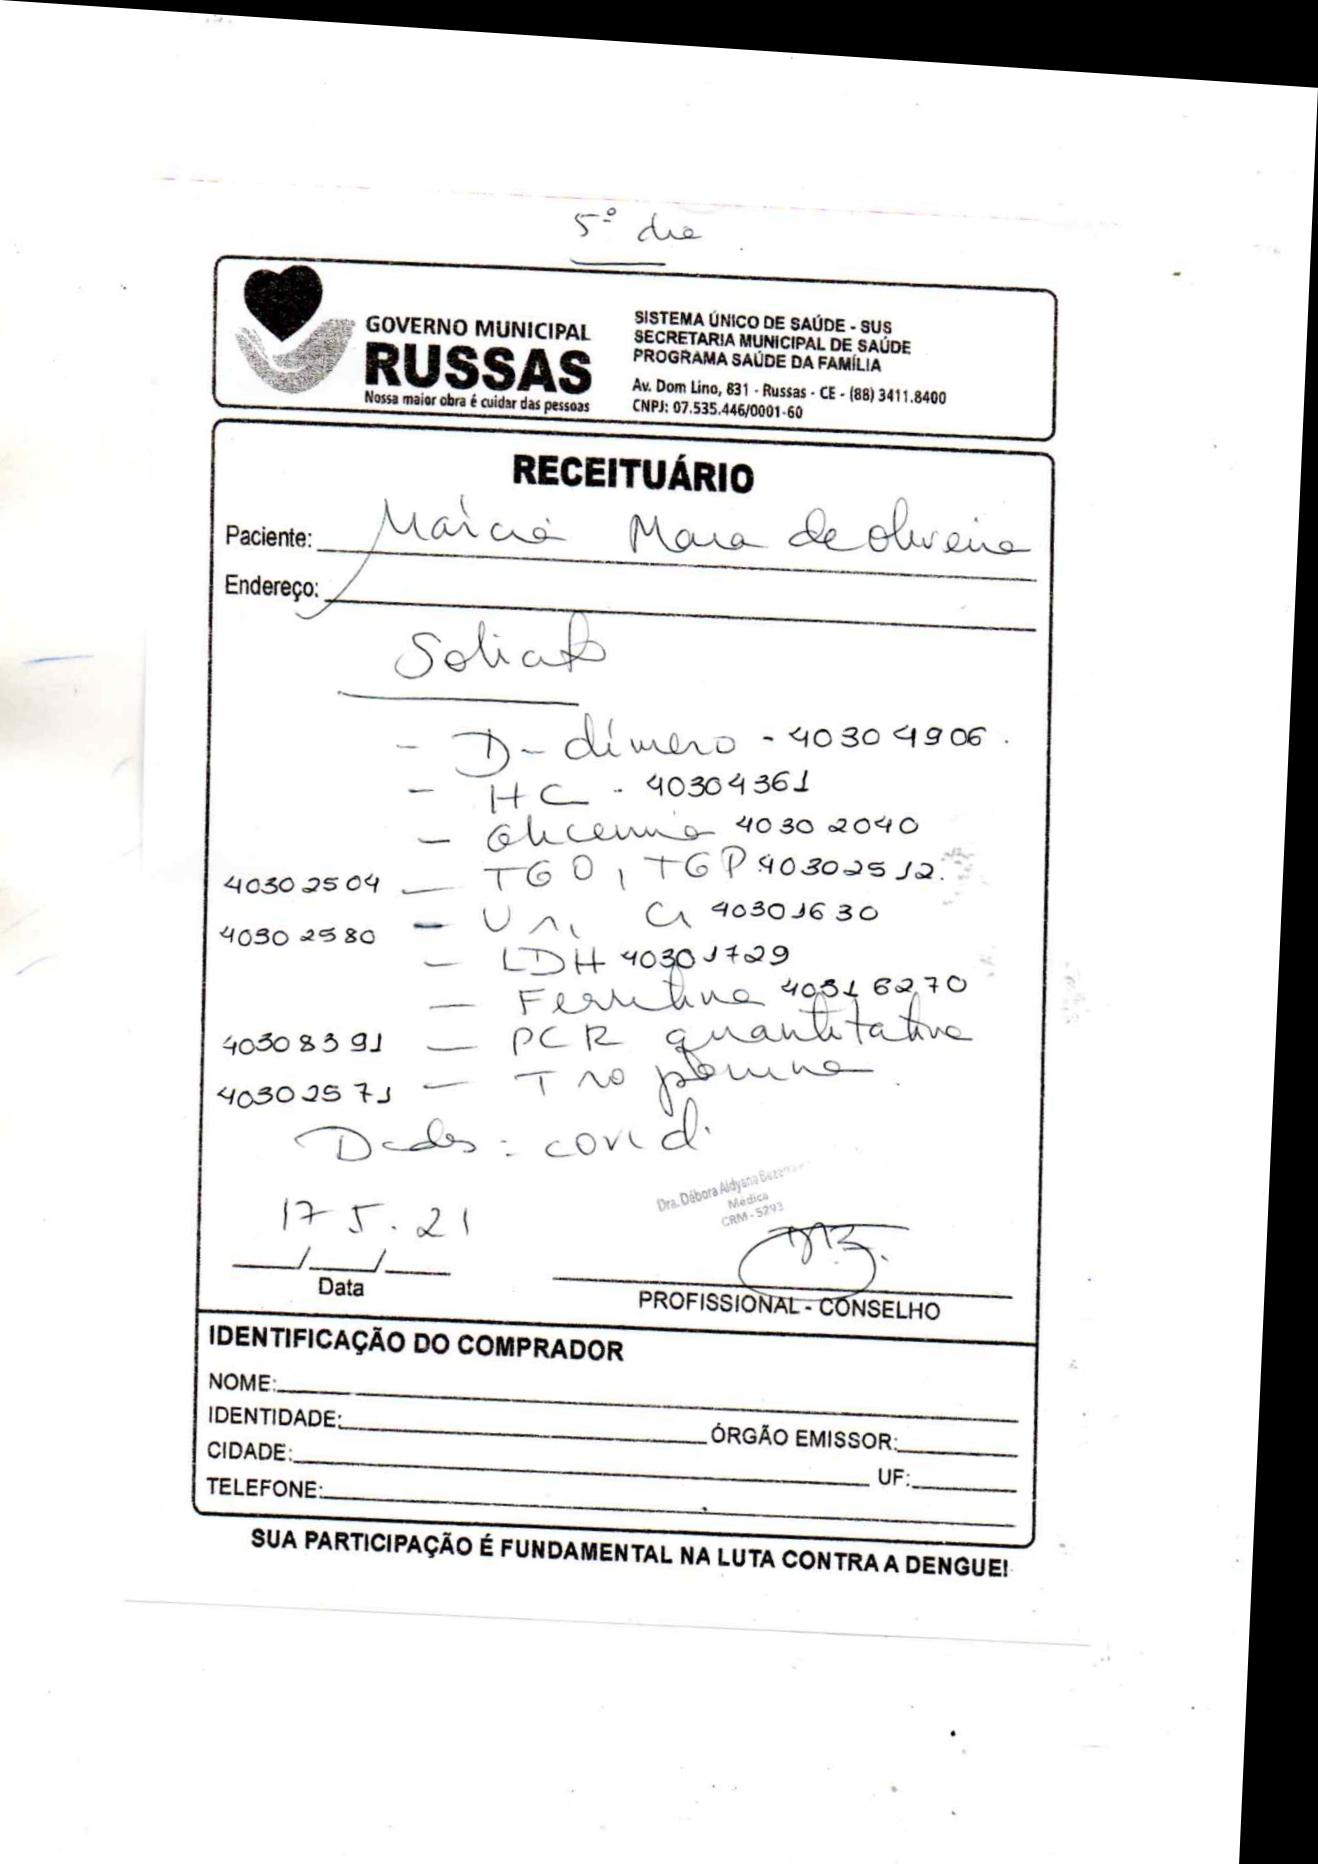 5º dia
GOVERNO MUNICIPAL
RUSSAS
Nossa maior obra é cuidar das pessoas
SISTEMA ÚNICO DE SAÚDE - SUS
SECRETARIA MUNICIPAL DE SAÚDE
PROGRAMA SAÚDE DA FAMÍLIA
Av. Dom Lino, 831 - Russas - CE - (88) 3411.8400
CNPJ: 07.535.446/0001-60
RECEITUÁRIO
Paciente: Márcia Maria de Oliveira
Endereço:
Solicito
- D-dímero - 40304906.
- HC - 40304361
- Glicemia 40302040
40302504 - TGO, TGP 40302512.
40302580 - Ur, Cr 40301630
- LDH 40301729
- Ferritina 40316270
40308391 - PCR quantitativa
40302571 - Troponina
Dados: covid.
17 5.21
Dra. Débora Aldyana
Médica
CRM - 5293
___/___/___
Data
PROFISSIONAL - CONSELHO
IDENTIFICAÇÃO DO COMPRADOR
NOME:
IDENTIDADE: ÓRGÃO EMISSOR:
CIDADE: UF:
TELEFONE:
SUA PARTICIPAÇÃO É FUNDAMENTAL NA LUTA CONTRA A DENGUE!